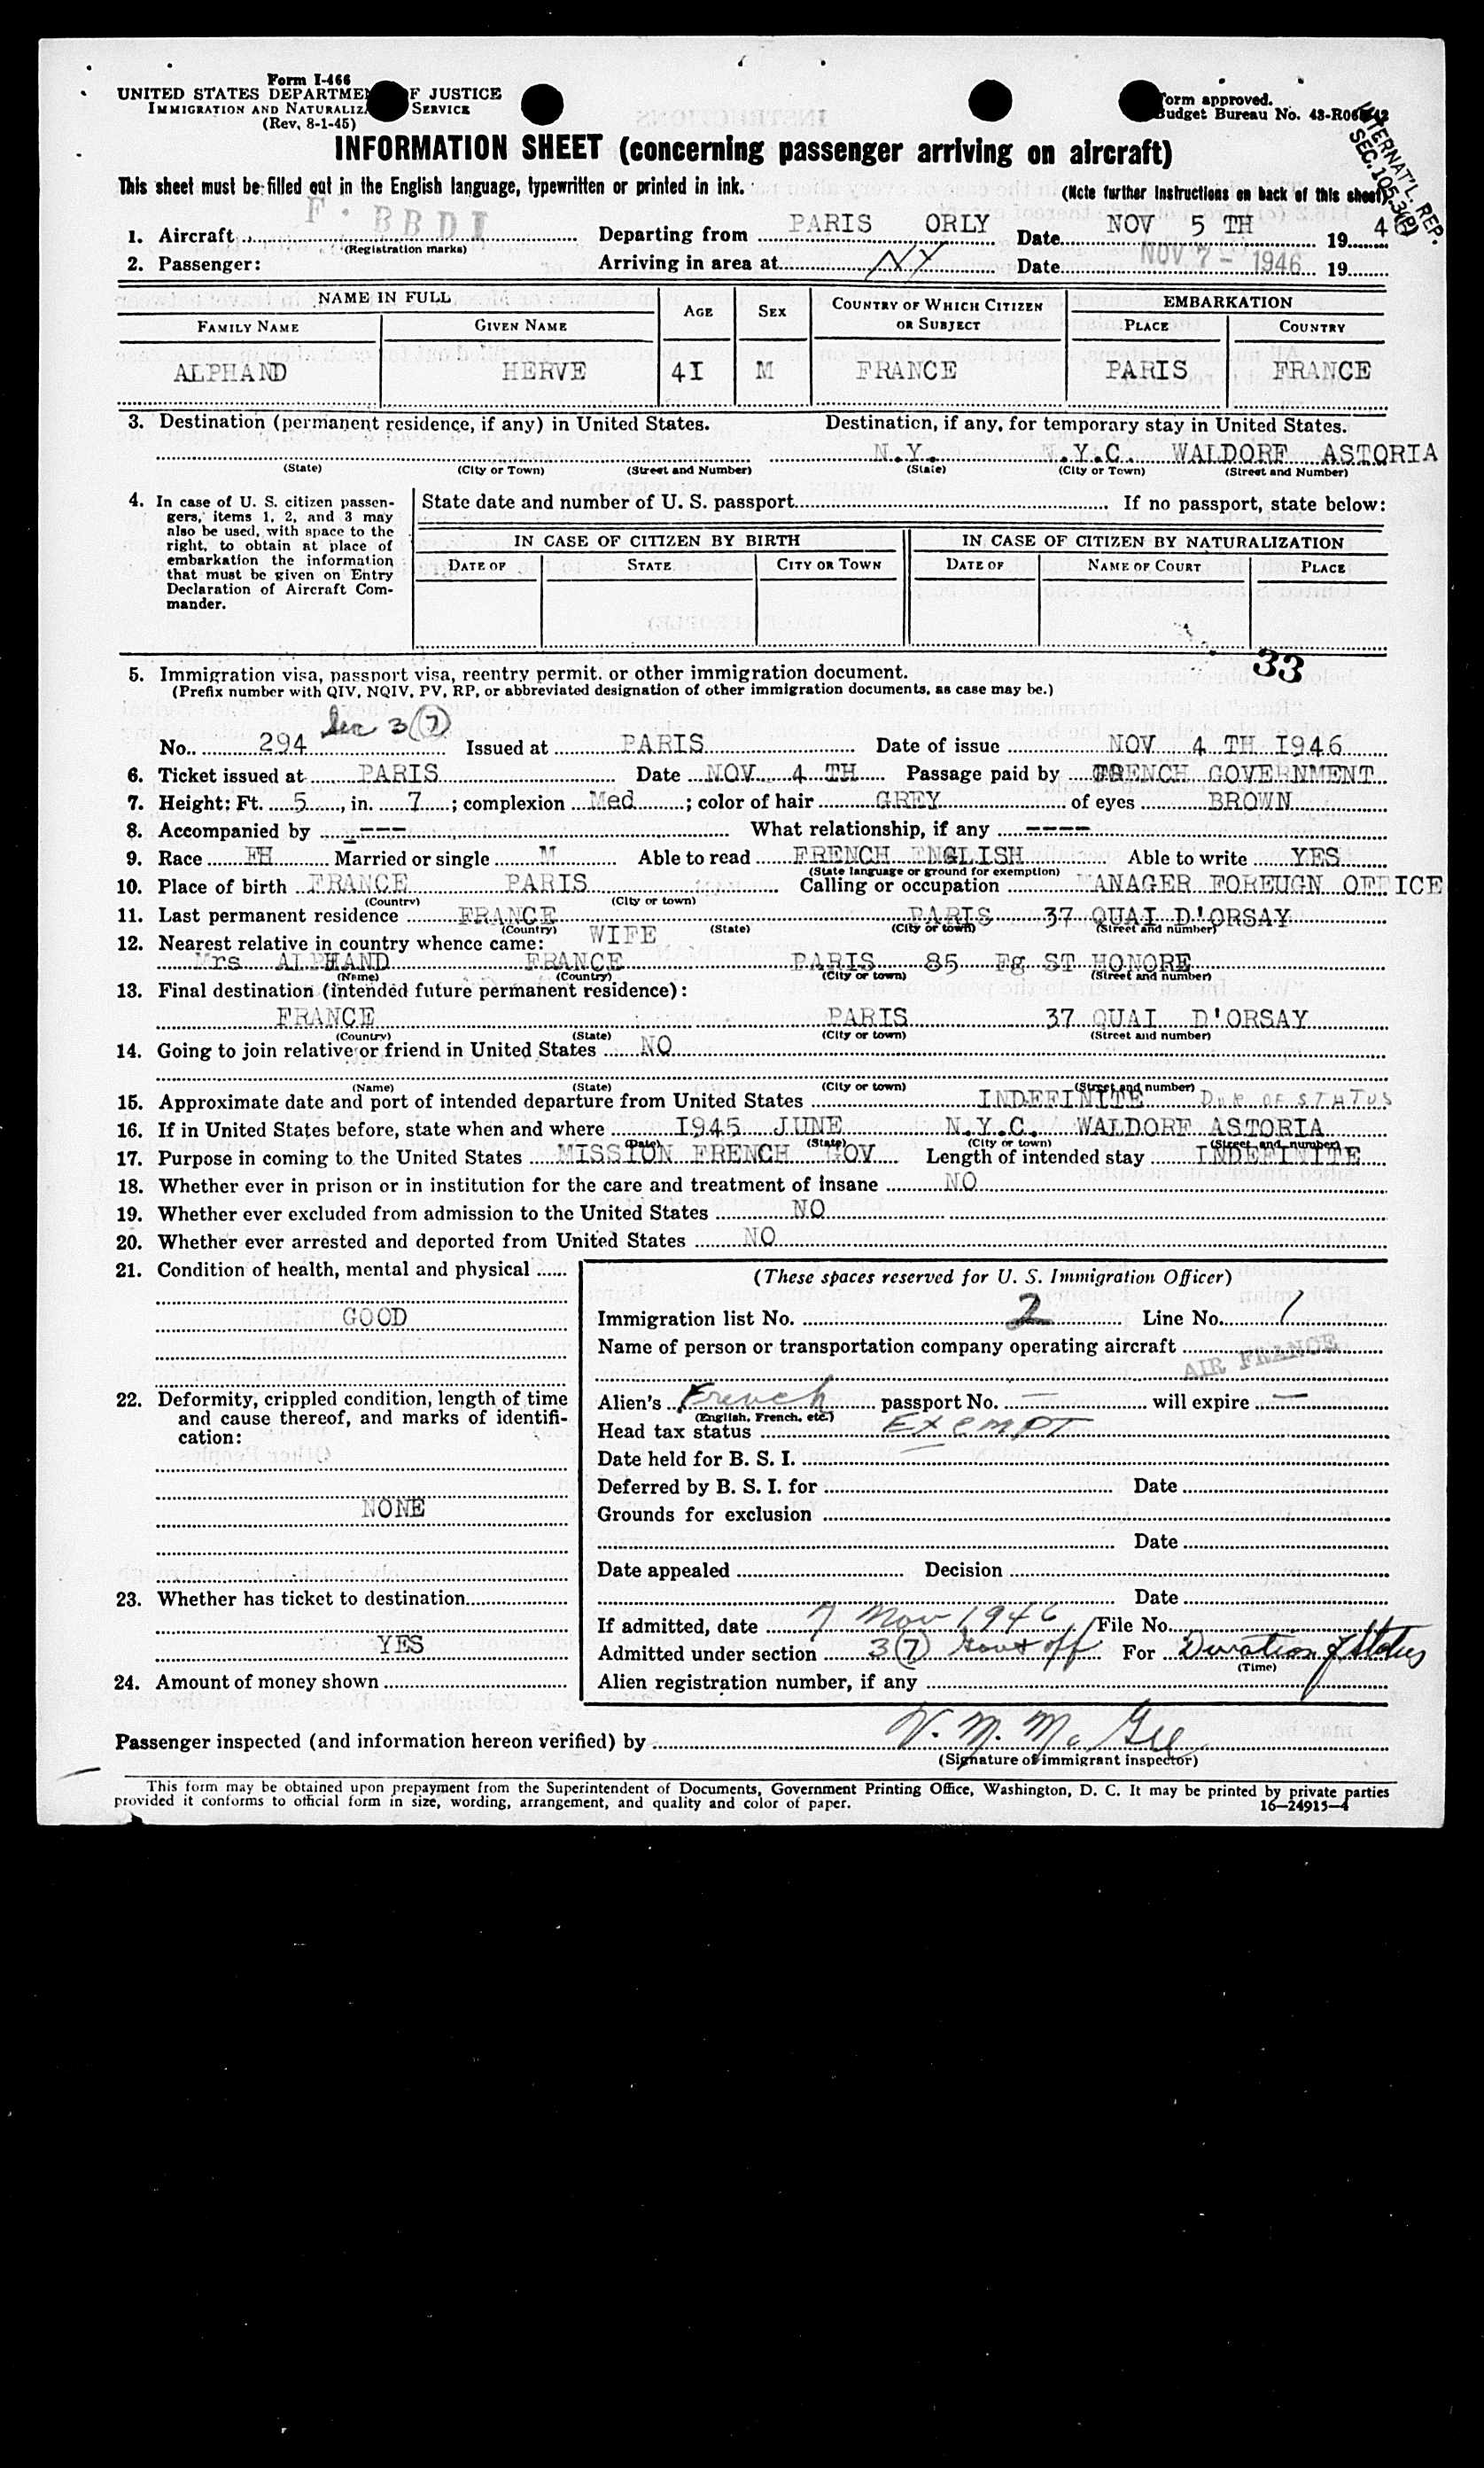 Form I-466
UNITED STATES DEPARTMEN F JUSTICE
IMMIGRATION AND NATURALIZA SERVICE
(Rev. 8-1-45)
orm approved.
udget Bureau No. 43-R06
INTERNAT'L. REP.
SEC. 105.3(P)
INFORMATION SHEET (concerning passenger arriving on aircraft)
This sheet must be filled out in the English language, typewritten or printed in ink. (Note further instructions on back of this sheet)
1. Aircraft F. BBDI Departing from PARIS ORLY Date NOV 5 TH 19 46
(Registration marks)
2. Passenger: Arriving in area at NY Date NOV 7 - 1946 19
NAME IN FULL AGE SEX COUNTRY OF WHICH CITIZEN OR SUBJECT EMBARKATION
FAMILY NAME GIVEN NAME PLACE COUNTRY
ALPHAND HERVE 4I M FRANCE PARIS FRANCE
3. Destination (permanent residence, if any) in United States. Destination, if any, for temporary stay in United States.
N.Y. N.Y.C. WALDORF ASTORIA
(State) (City or Town) (Street and Number) (State) (City or Town) (Street and Number)
4. In case of U. S. citizen passen-
gers, items 1, 2, and 3 may
also be used, with space to the
right, to obtain at place of
embarkation the information
that must be given on Entry
Declaration of Aircraft Com-
mander.
State date and number of U. S. passport If no passport, state below:
IN CASE OF CITIZEN BY BIRTH IN CASE OF CITIZEN BY NATURALIZATION
DATE OF STATE CITY OR TOWN DATE OF NAME OF COURT PLACE
33
5. Immigration visa, passport visa, reentry permit, or other immigration document.
(Prefix number with QIV, NQIV, PV, RP, or abbreviated designation of other immigration documents, as case may be.)
Sec 3(7)
No. 294 Issued at PARIS Date of issue NOV 4 TH I946
6. Ticket issued at PARIS Date NOV 4 TH Passage paid by FRENCH GOVERNMENT
7. Height: Ft. 5, in. 7; complexion Med; color of hair GREY of eyes BROWN
8. Accompanied by ---- What relationship, if any ----
9. Race FH Married or single M Able to read FRENCH ENGLISH Able to write YES
(State language or ground for exemption)
10. Place of birth FRANCE PARIS Calling or occupation MANAGER FOREUGN OFFICE
(Country) (City or town)
11. Last permanent residence FRANCE PARIS 37 QUAI D'ORSAY
(Country) (State) (City or town) (Street and number)
12. Nearest relative in country whence came: WIFE
Mrs ALPHAND FRANCE PARIS 85 Fg ST HONORE
(Name) (Country) (City or town) (Street and number)
13. Final destination (intended future permanent residence):
FRANCE PARIS 37 QUAI D'ORSAY
(Country) (State) (City or town) (Street and number)
14. Going to join relative or friend in United States NO
(Name) (State) (City or town) (Street and number)
15. Approximate date and port of intended departure from United States INDEFINITE DUR OF STATUS
16. If in United States before, state when and where I945 JUNE N.Y.C. WALDORF ASTORIA
(Date) (State) (City or town) (Street and number)
17. Purpose in coming to the United States MISSION FRENCH GOV Length of intended stay INDEFINITE
18. Whether ever in prison or in institution for the care and treatment of insane NO
19. Whether ever excluded from admission to the United States NO
20. Whether ever arrested and deported from United States NO
21. Condition of health, mental and physical
GOOD
22. Deformity, crippled condition, length of time
and cause thereof, and marks of identifi-
cation:
NONE
23. Whether has ticket to destination
YES
24. Amount of money shown
(These spaces reserved for U. S. Immigration Officer)
Immigration list No. 2 Line No. 1
Name of person or transportation company operating aircraft
AIR FRANCE
Alien's French passport No. — will expire —
(English, French, etc.)
Head tax status Exempt
Date held for B. S. I.
Deferred by B. S. I. for Date
Grounds for exclusion
Date
Date appealed Decision
Date
If admitted, date 7 Nov 1946 File No.
Admitted under section 3(7) Govt off For Duration of Status
(Time)
Alien registration number, if any
Passenger inspected (and information hereon verified) by V. M. McGee
(Signature of immigrant inspector)
This form may be obtained upon prepayment from the Superintendent of Documents, Government Printing Office, Washington, D. C. It may be printed by private parties
provided it conforms to official form in size, wording, arrangement, and quality and color of paper. 16—24915-4